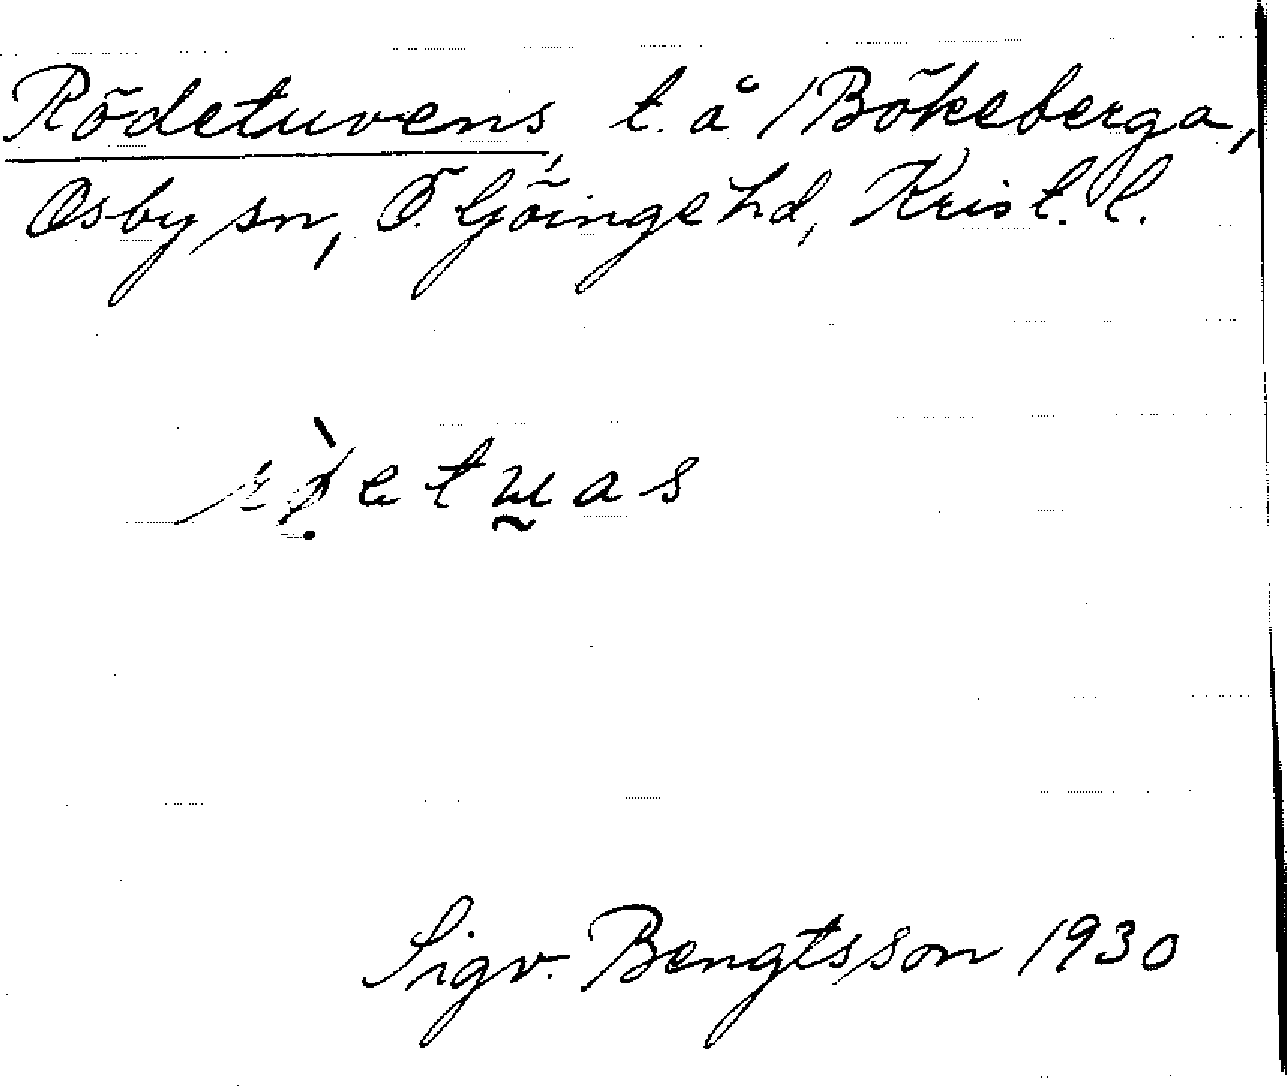 Rödetuvens, t. å /Bökeberga,
Osby sn, Ö. Göinge hd, Krist. l.
Sigv. Bengtsson 1930